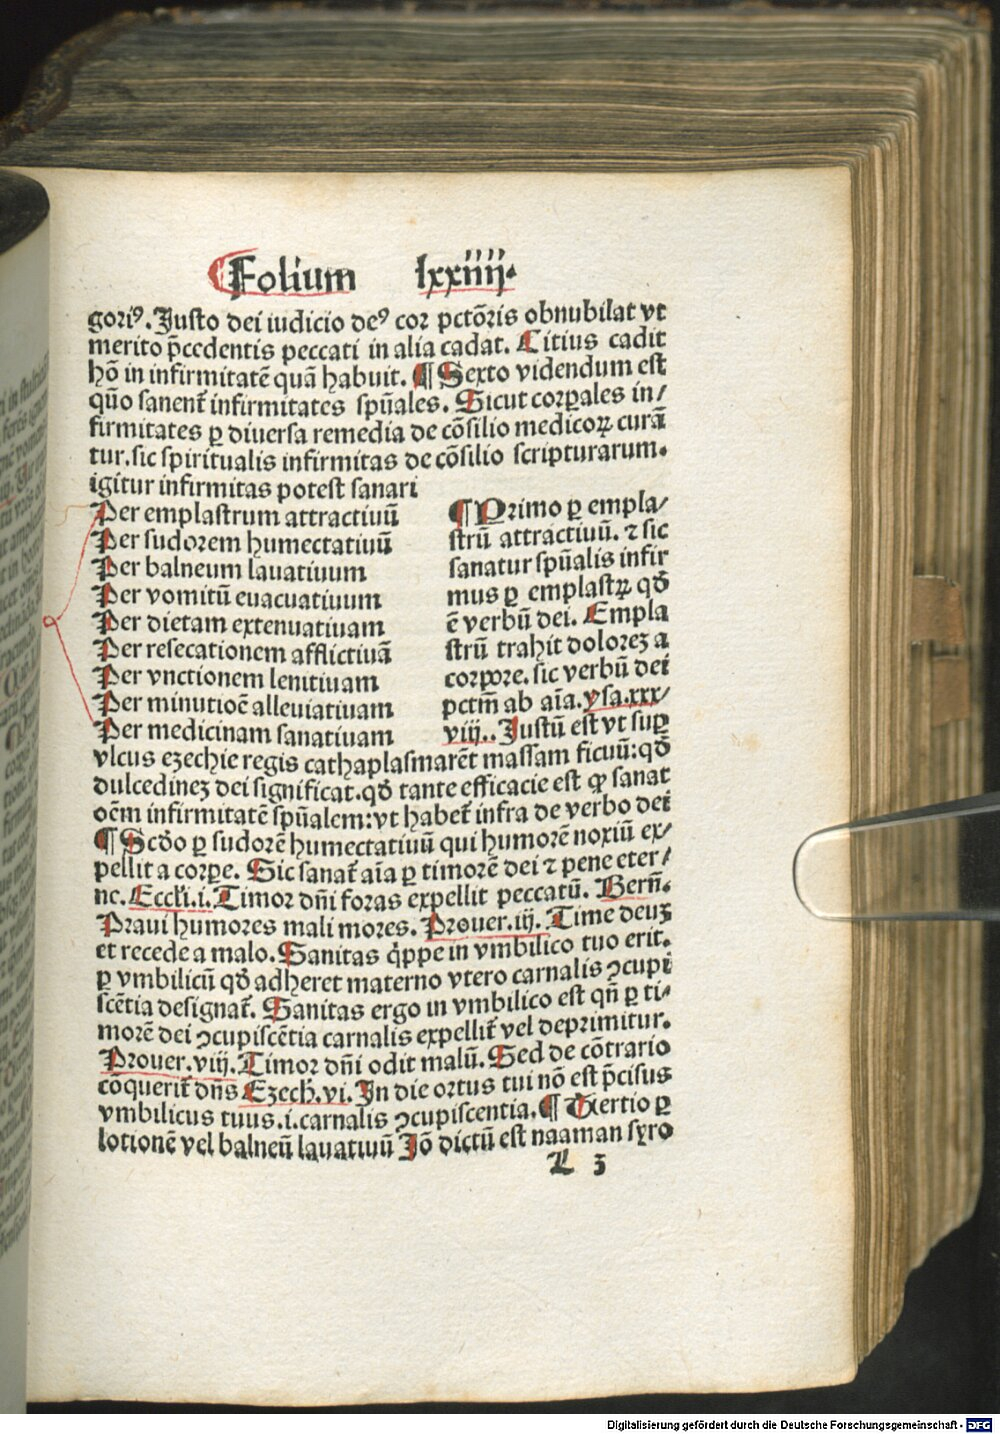 Folium lxxiiij.
goriꝰ. Justo dei iudicio deꝰ cor pctōris obnubilat vt
merito p̄cedentis peccati in alia cadat. Citius cadit
hō in infirmitatē quā habuit. ¶ Sexto videndum est
qūo sanent̄ infirmitates spūales. Sicut corꝑales in/
firmitates ꝑ diuersa remedia de cōsilio medicoꝝ curā
tur. sic spiritualis infirmitas de cōsilio scripturarum.
igitur infirmitas potest sanari
Per emplastrum attractiuū
Per sudorem humectatiuū
Per balneum lauatiuum
Per vomitū euacuatiuum
Per dietam extenuatiuam
Per resecationem afflictiuā
Per vnctionem lenitiuam
Per minutioē alleuiatiuam
Per medicinam sanatiuam
¶ Primo ꝑ empla/
strū attractiuū. ⁊ sic
sanatur spūalis infir
mus ꝑ emplastꝝ qđ
ē verbū dei. Empla
strū trahit dolorez a
corpore. sic verbū dei
pctm̄ ab aīa. ysa. xxx/
viij.. Justū est vt suꝑ
vlcus ezechie regis cathaplasmarēt massam ficuū: qđ
dulcedinez dei significat. qđ tante efficacie est ꝙ sanat
oēm infirmitatē spūalem: vt habet̄ infra de verbo dei
¶ Scđo ꝑ sudorē humectatiuū qui humorē noxiū ex/
pellit a corpe. Sic sanat̄ aīa ꝑ timorē dei ⁊ pene eter/
ne. Eccłi. i. Timor dn̄i foras expellit peccatū. Bern̄.
Praui humores mali mores. Prouer. iij. Time deuz
et recede a malo. Sanitas q̇ppe in vmbilico tuo erit.
ꝑ vmbilicū qđ adheret materno vtero carnalis ꝯcupi
scētia designat̄. Sanitas ergo in vmbilico est qn̄ ꝑ ti/
morē dei ꝯcupiscētia carnalis expellit̄ vel deprimitur.
Prouer. viij. Timor dn̄i odit malū. Sed de cōtrario
cōquerit̄ dn̄s Ezech. vi. In die ortus tui nō est p̄cisus
vmbilicus tuus. i. carnalis ꝯcupiscentia. ¶ Tertio ꝑ
lotionē vel balneū lauatiuū Jō dictū est naaman syro
L 3
Digitalisierung gefördert durch die Deutsche Forschungsgemeinschaft - DFG